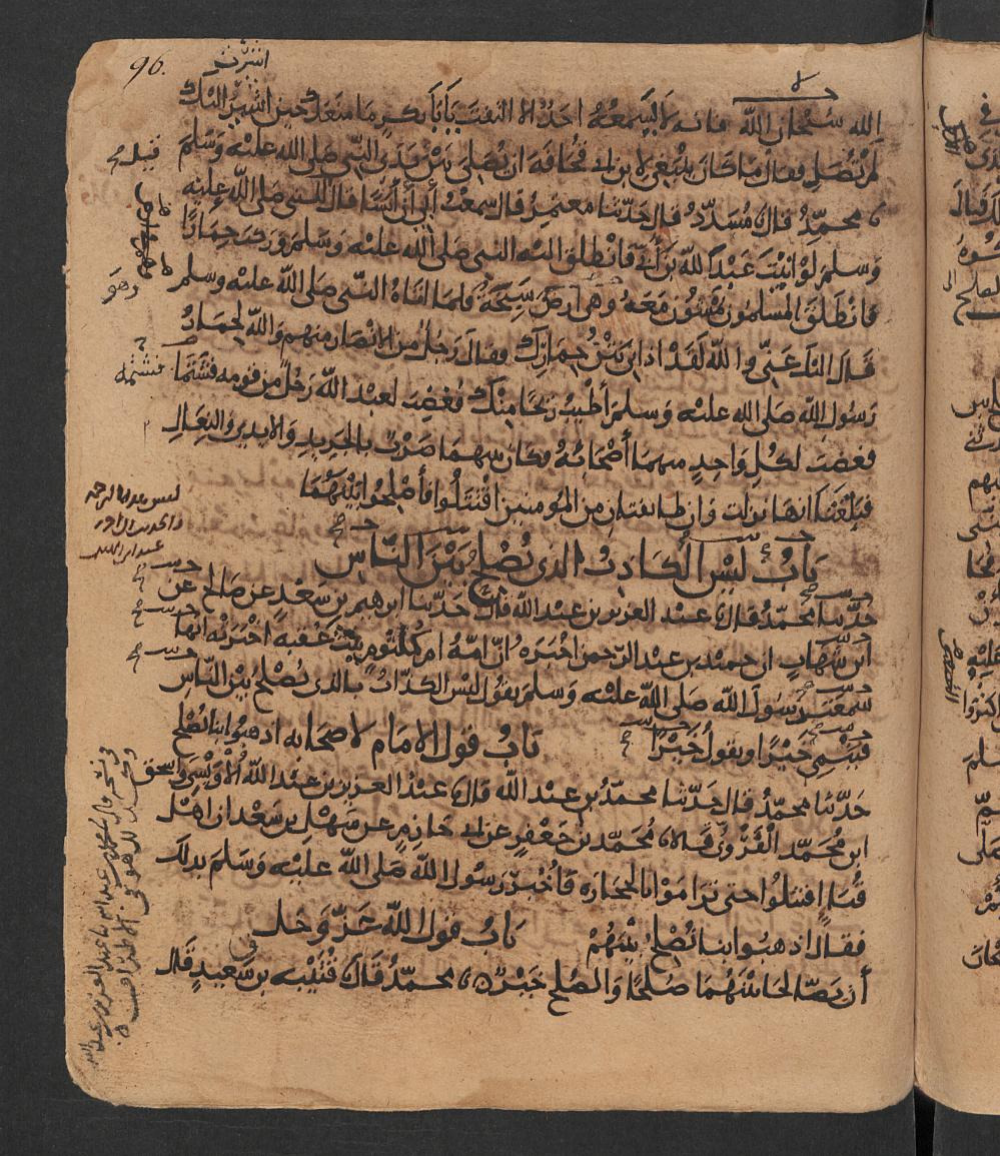 96.
اشرت
الله سبحان الله فانه لا يسمعه احد الا التفت يا أبا بكر ما منعك حين اشير اليك
لم تصل فقال ما كان ينبغي لابن ابي قحافة ان يصلي بين يدي النبي صلى الله عليه وسلم
محمد قال مسدد قال حدثنا معتمر قال سمعت أبي أن أنسا قال قيل للنبي صلى الله عليه
وسلم لو اتيت عبد الله بن أبي فانطلق اليه النبي صلى الله عليه وسلم وركب حمارا
فانطلق المسلمون يمشون معه وهي ارض سبخة فلما اتاه النبي صلى الله عليه وسلم
قال اليك عني والله لقد اذاني نتن حمارك فقال رجل من الانصار منهم والله لحمار
رسول الله صلى الله عليه وسلم أطيب ريحا منك فغضب لعبد الله رجل من قومه فشتما
فغضب لكل واحد منهما أصحابه فكان بينهما ضرب بالجريد والايدي والنعال
فبلغنا انها نزلت وان طائفتان من المؤمنين اقتتلوا فأصلحوا بينهما
باب ليس الكاذب الذي يصلح بين الناس
حدثنا محمد قال عبد العزيز بن عبد الله قال حدثنا ابرهيم بن سعد عن صالح عن
ابن شهاب ان حميد بن عبد الرحمن اخبره ان امه ام كلثوم بنت عقبة اخبرته انها
سمعت رسول الله صلى الله عليه وسلم يقول ليس الكذاب بالذي يصلح بين الناس
فينمي خيرا او يقول خيرا باب قول الامام لاصحابه اذهبوا بنا نصلح
حدثنا محمد قال حدثنا محمد بن عبد الله قال عبد العزيز بن عبد الله الأويسي واسحق
ابن محمد الفروي قالا محمد بن جعفر عن ابي حازم عن سهل بن سعد ان اهل
قبا اقتتلوا حتى تراموا بالحجارة فأخبر رسول الله صلى الله عليه وسلم بذلك
فقال اذهبوا بنا نصلح بينهم باب قول الله عز وجل
أن يصالحا بينهما صلحا والصلح خير محمد قال قتيبة بن سعيد قال